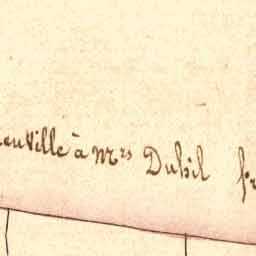 euville à Mrs Duhil fr